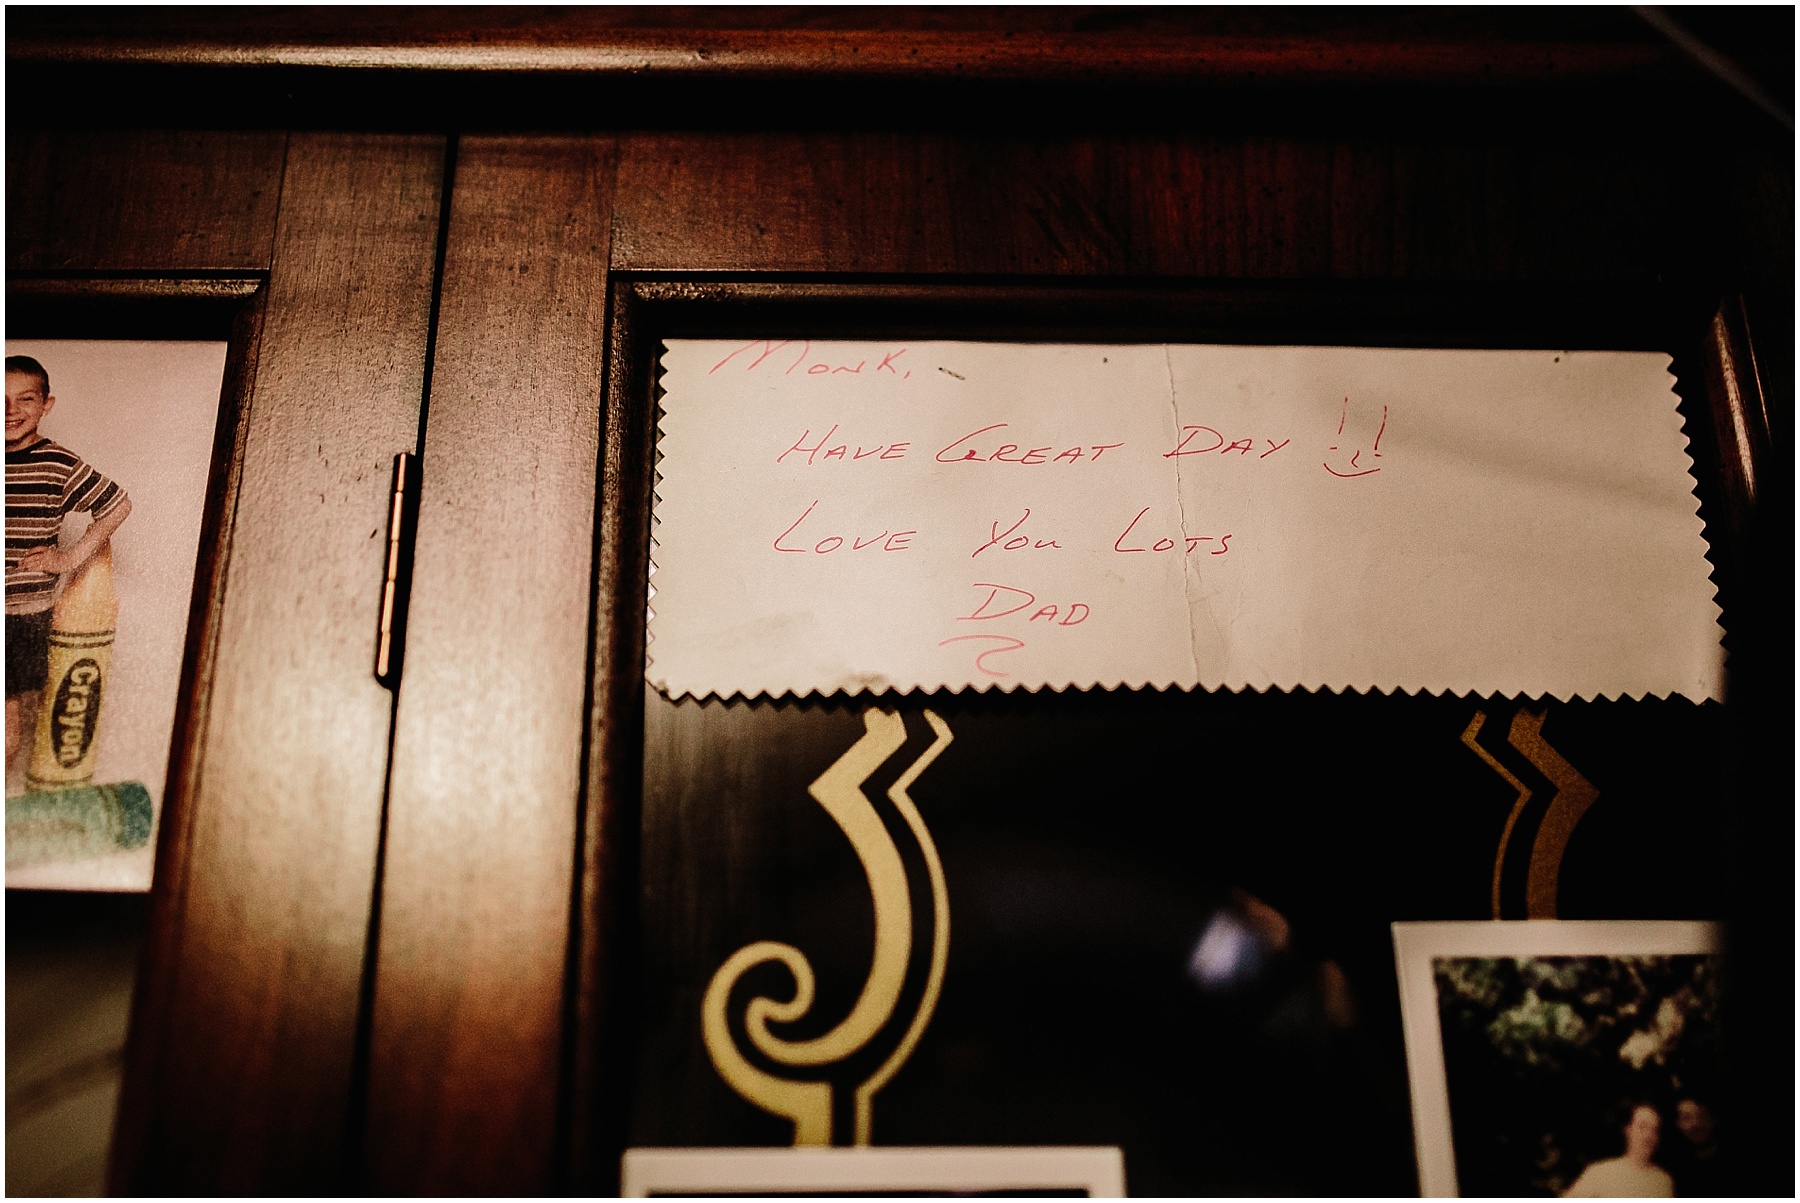 Monk,
HAVE GREAT DAY !!
LOVE YOU LOTS
DAD
Crayon